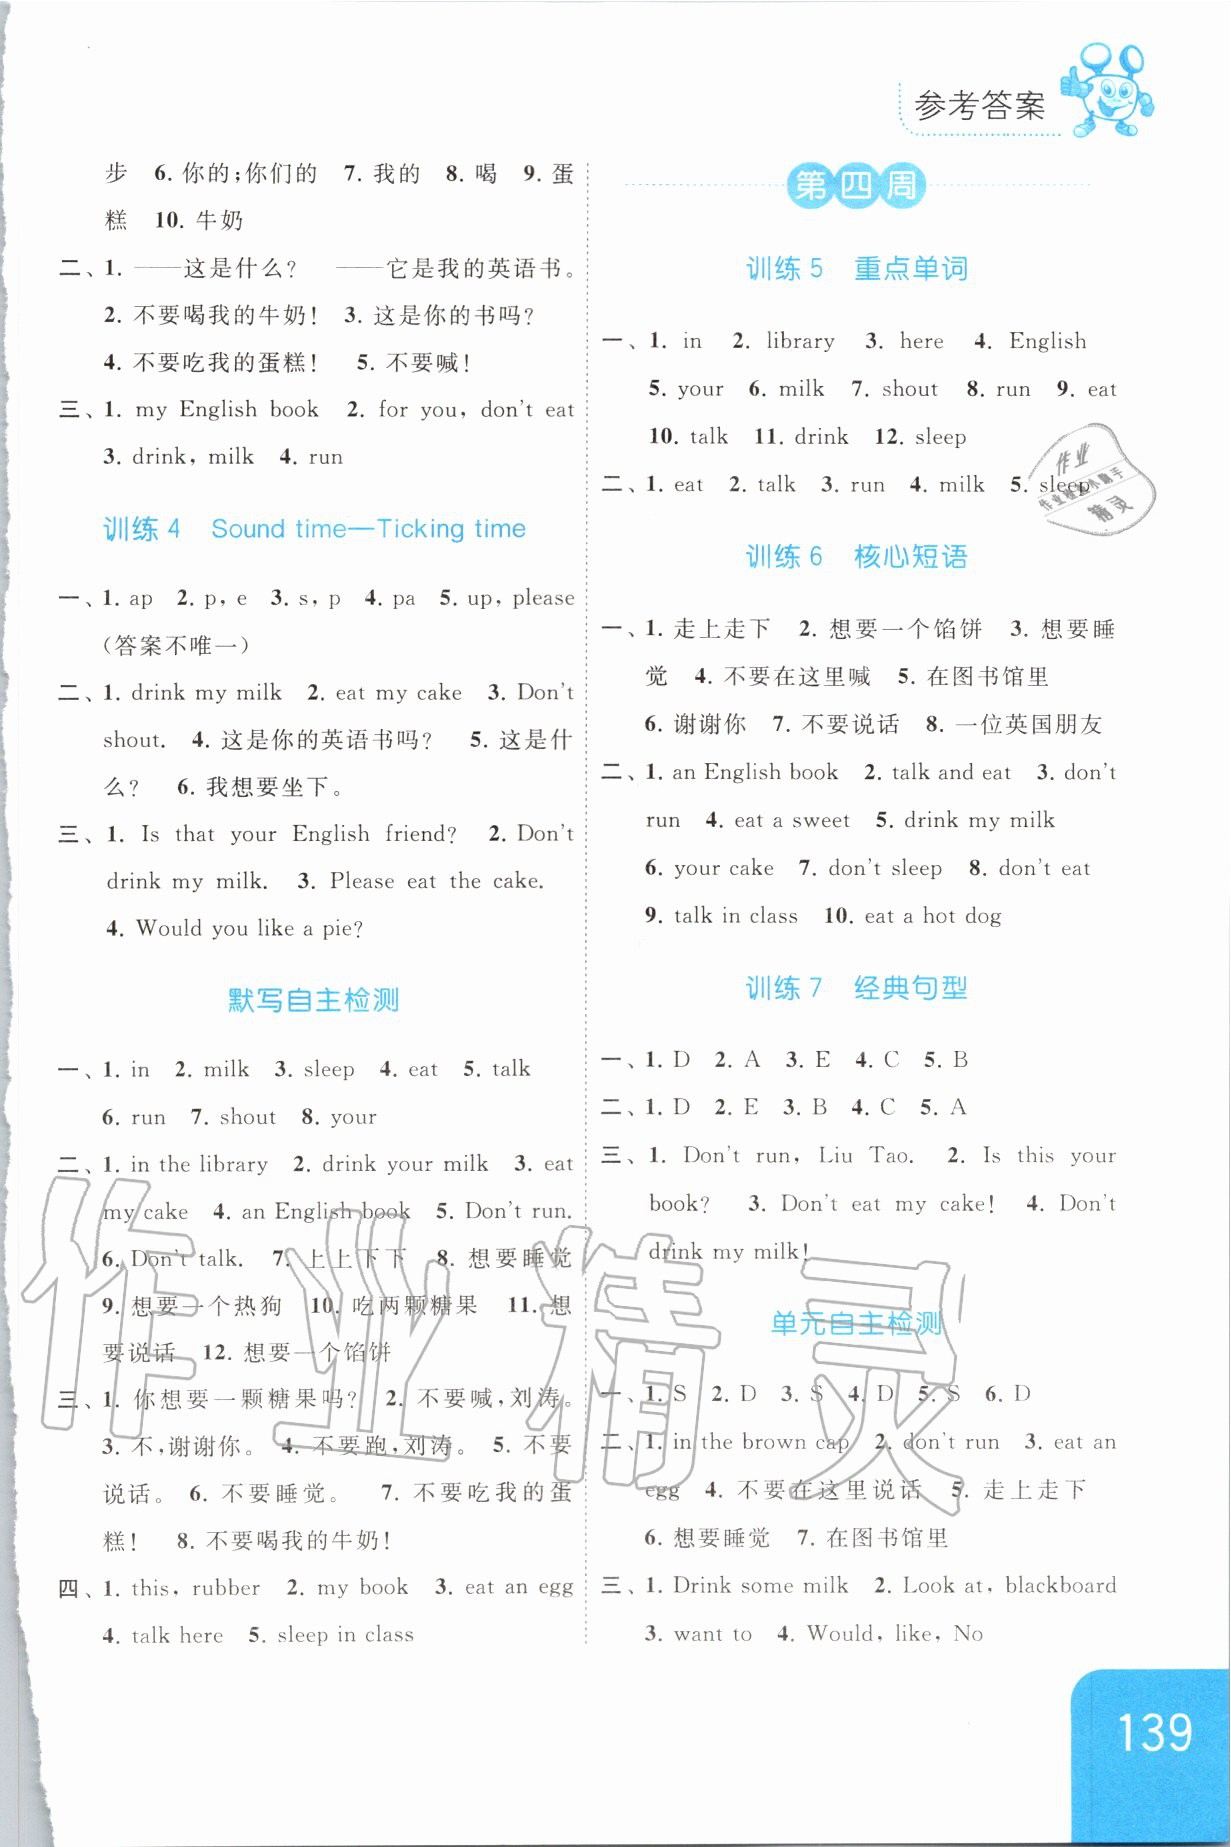 参考答案
步 6. 你的;你们的 7. 我的 8. 喝 9. 蛋
糕 10. 牛奶
二、1. ——这是什么? ——它是我的英语书。
2. 不要喝我的牛奶! 3. 这是你的书吗?
4. 不要吃我的蛋糕! 5. 不要喊!
三、1. my English book 2. for you, don't eat
3. drink, milk 4. run
训练 4 Sound time—Ticking time
一、1. ap 2. p, e 3. s, p 4. pa 5. up, please
(答案不唯一)
二、1. drink my milk 2. eat my cake 3. Don't
shout. 4. 这是你的英语书吗? 5. 这是什
么? 6. 我想要坐下。
三、1. Is that your English friend? 2. Don't
drink my milk. 3. Please eat the cake.
4. Would you like a pie?
默写自主检测
一、1. in 2. milk 3. sleep 4. eat 5. talk
6. run 7. shout 8. your
二、1. in the library 2. drink your milk 3. eat
my cake 4. an English book 5. Don't run.
6. Don't talk. 7. 上上下下 8. 想要睡觉
9. 想要一个热狗 10. 吃两颗糖果 11. 想
要说话 12. 想要一个馅饼
三、1. 你想要一颗糖果吗? 2. 不要喊,刘涛。
3. 不,谢谢你。 4. 不要跑,刘涛。 5. 不要
说话。 6. 不要睡觉。 7. 不要吃我的蛋
糕! 8. 不要喝我的牛奶!
四、1. this, rubber 2. my book 3. eat an egg
4. talk here 5. sleep in class
第四周
训练 5 重点单词
一、1. in 2. library 3. here 4. English
5. your 6. milk 7. shout 8. run 9. eat
10. talk 11. drink 12. sleep
二、1. eat 2. talk 3. run 4. milk 5. sleep
训练 6 核心短语
一、1. 走上走下 2. 想要一个馅饼 3. 想要睡
觉 4. 不要在这里喊 5. 在图书馆里
6. 谢谢你 7. 不要说话 8. 一位英国朋友
二、1. an English book 2. talk and eat 3. don't
run 4. eat a sweet 5. drink my milk
6. your cake 7. don't sleep 8. don't eat
9. talk in class 10. eat a hot dog
训练 7 经典句型
一、1. D 2. A 3. E 4. C 5. B
二、1. D 2. E 3. B 4. C 5. A
三、1. Don't run, Liu Tao. 2. Is this your
book? 3. Don't eat my cake! 4. Don't
drink my milk!
单元自主检测
一、1. S 2. D 3. S 4. D 5. S 6. D
二、1. in the brown cap 2. don't run 3. eat an
egg 4. 不要在这里说话 5. 走上走下
6. 想要睡觉 7. 在图书馆里
三、1. Drink some milk 2. Look at, blackboard
3. want to 4. Would, like, No
139
作业精灵
作业
精灵